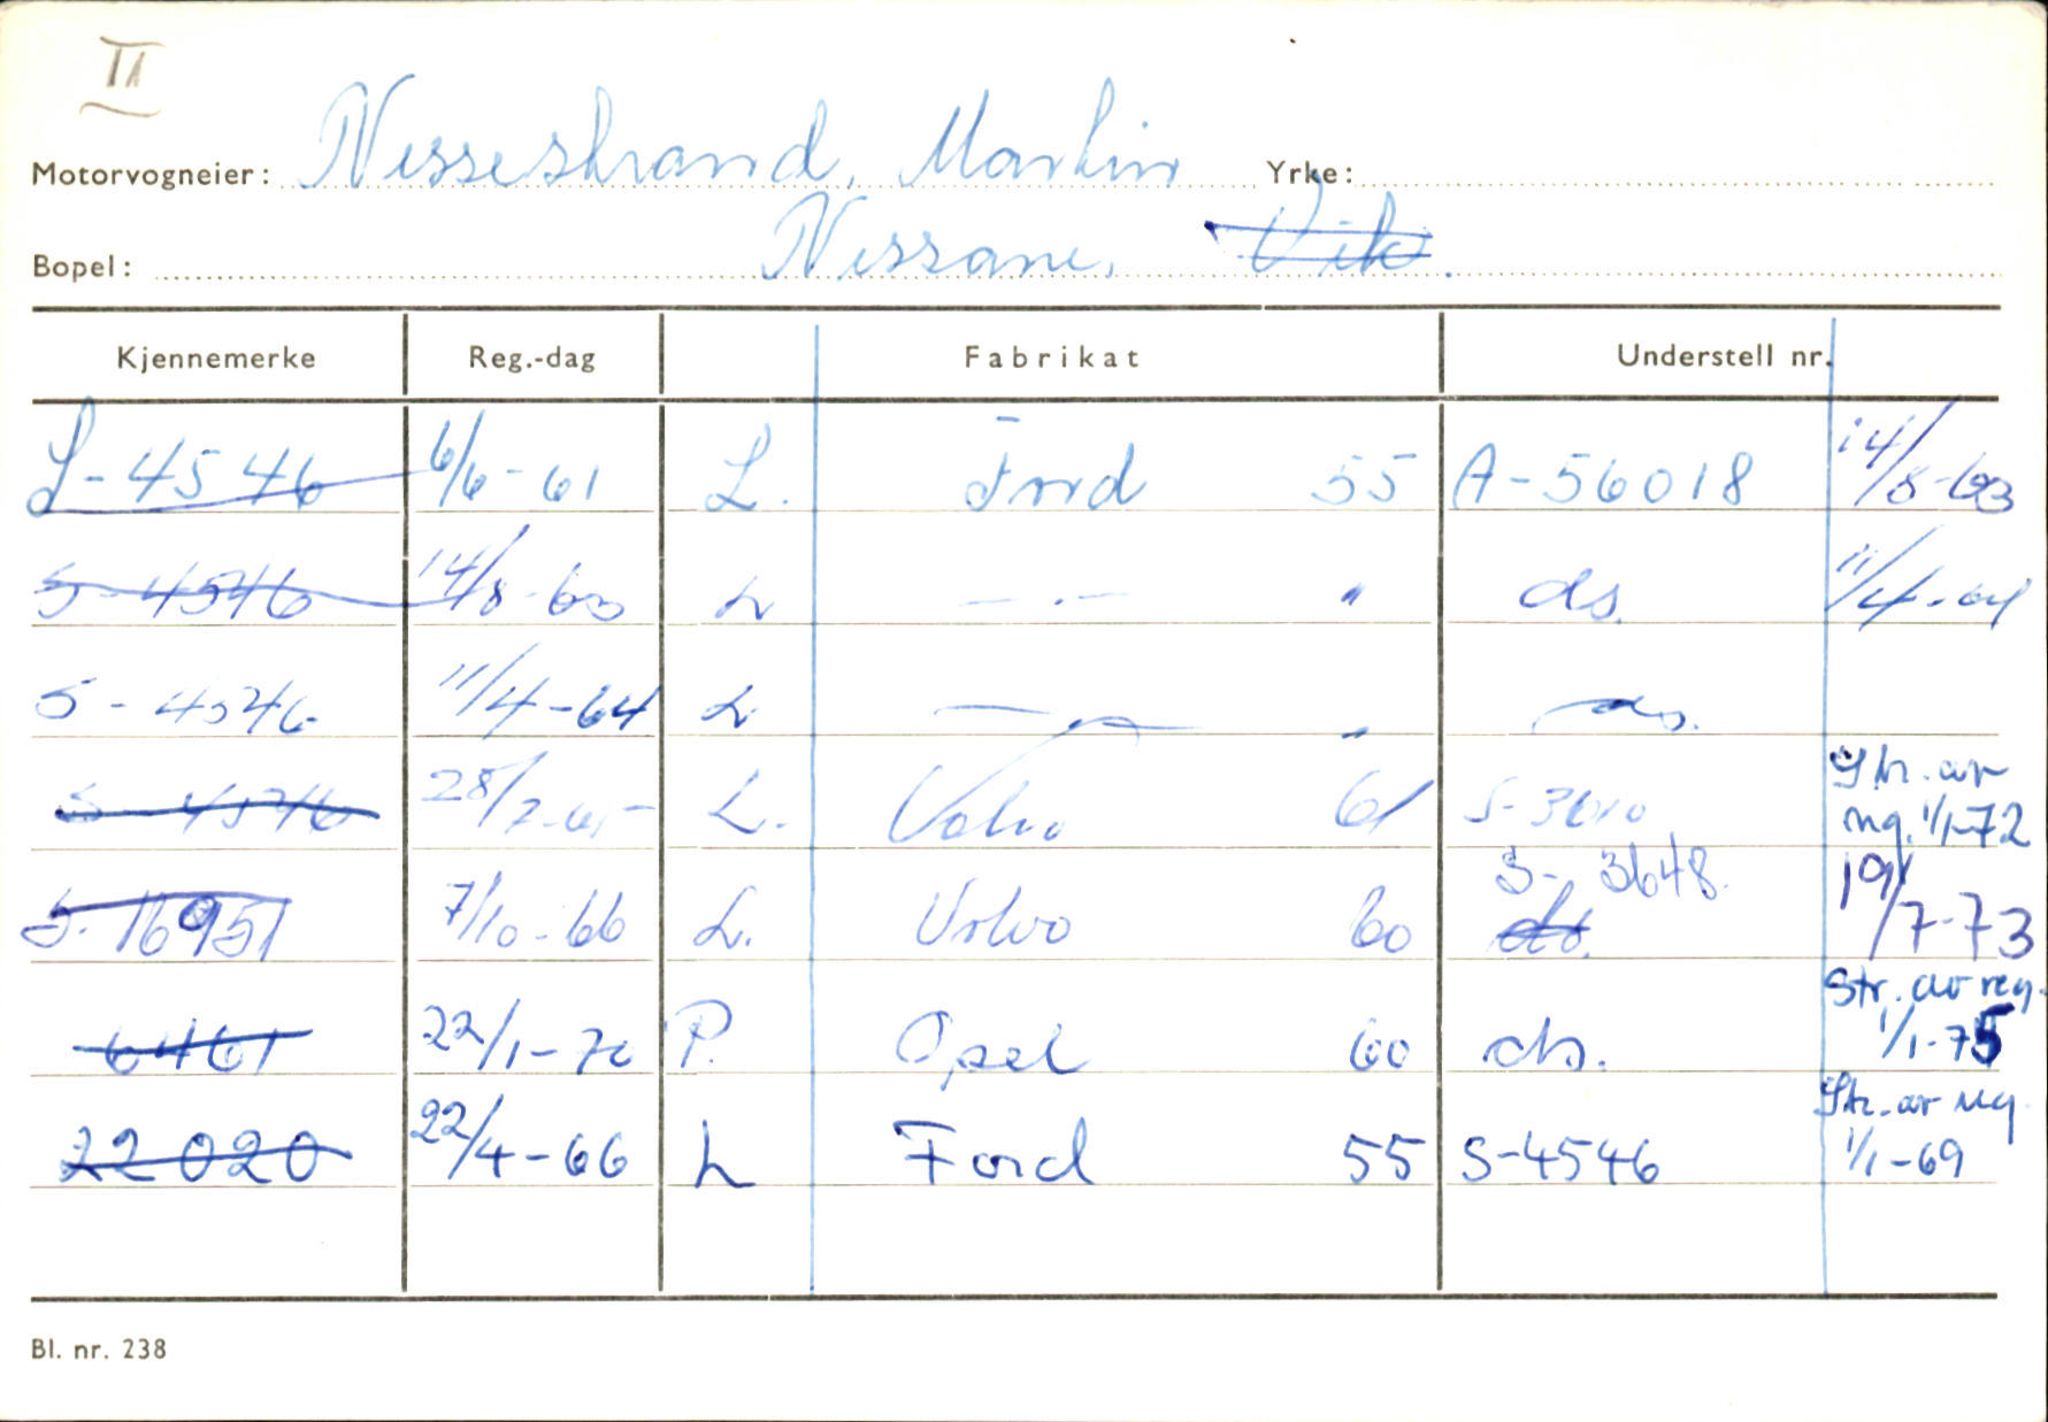 II
Motorvogneier: Nissestrand, Martin Yrke:
Bopel: Nissane, Vik.
Kjennemerke Reg.-dag Fabrikat Understell nr.
S-4546 6/6-61 L. Ford 55 A-56018 14/8-63
S-4546 14/8-63 L — . — " ds. 11/4-64
S-4546 11/4-64 L — " — " ds.
S-4546 28/7-65 L. Volvo 61 S-3610 Str. av reg. 1/1-72
S-16951 7/10-66 L. Volvo 60 S-3648 ds. 19/7-73
6461 22/1-70 P. Opel 60 ds. Str. av reg. 1/1-75
22020 22/4-66 L Ford 55 S-4546 Str. av reg. 1/1-69
Bl. nr. 238